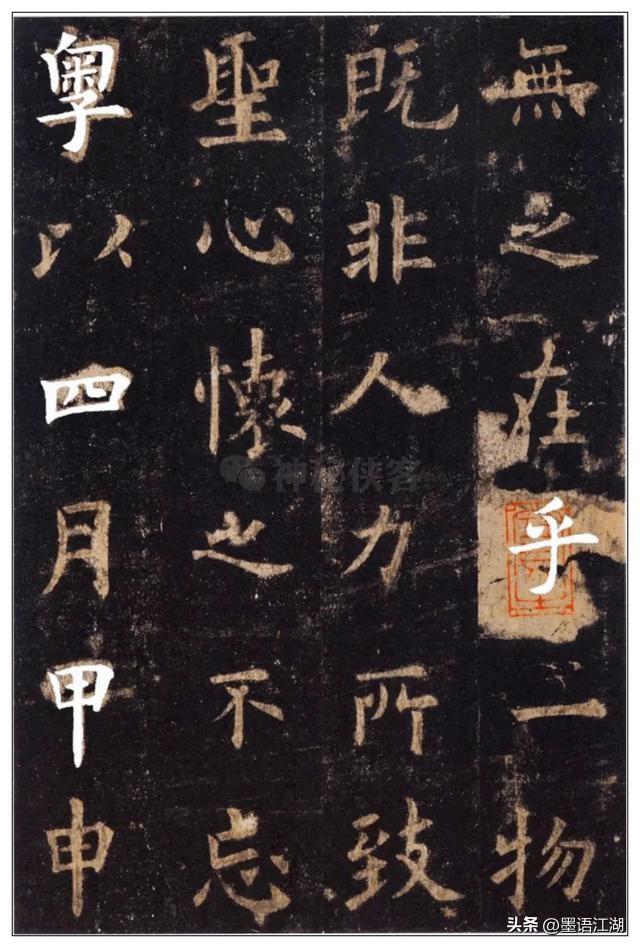 無之在乎一物
既非人力所致
聖心懷之不忘
粤以四月甲申
神秘侠客
头条 @墨语江湖